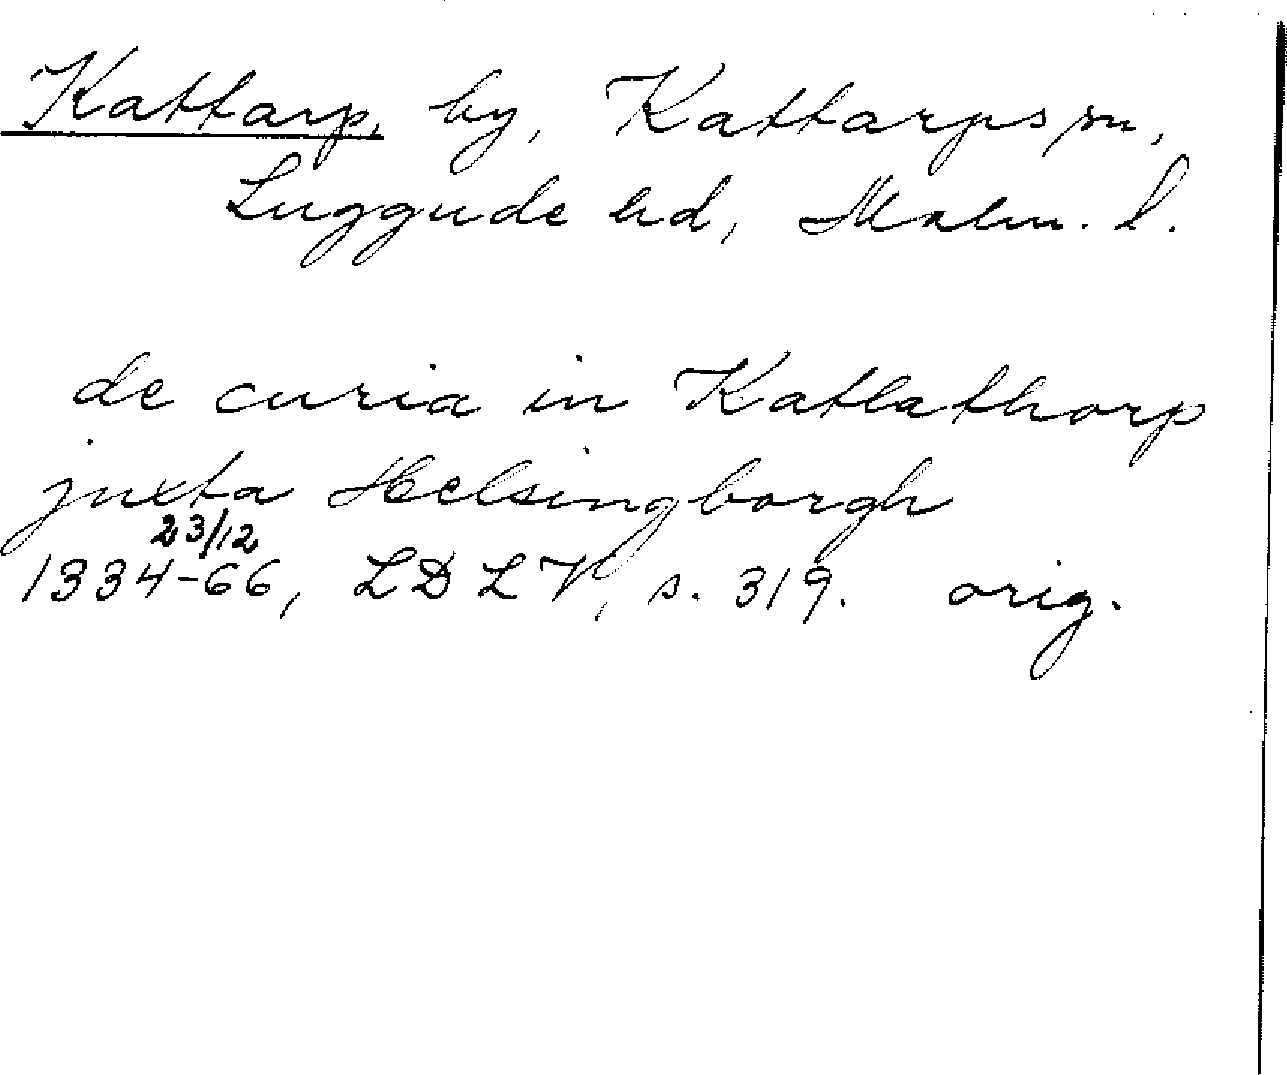 Kattarp, by, Kattarps sn,
Luggude hd, Malm. l.
de curia in Katlathorp
juxta Helsingborgh
23/12
1334-66, LDLV, s. 319. orig.